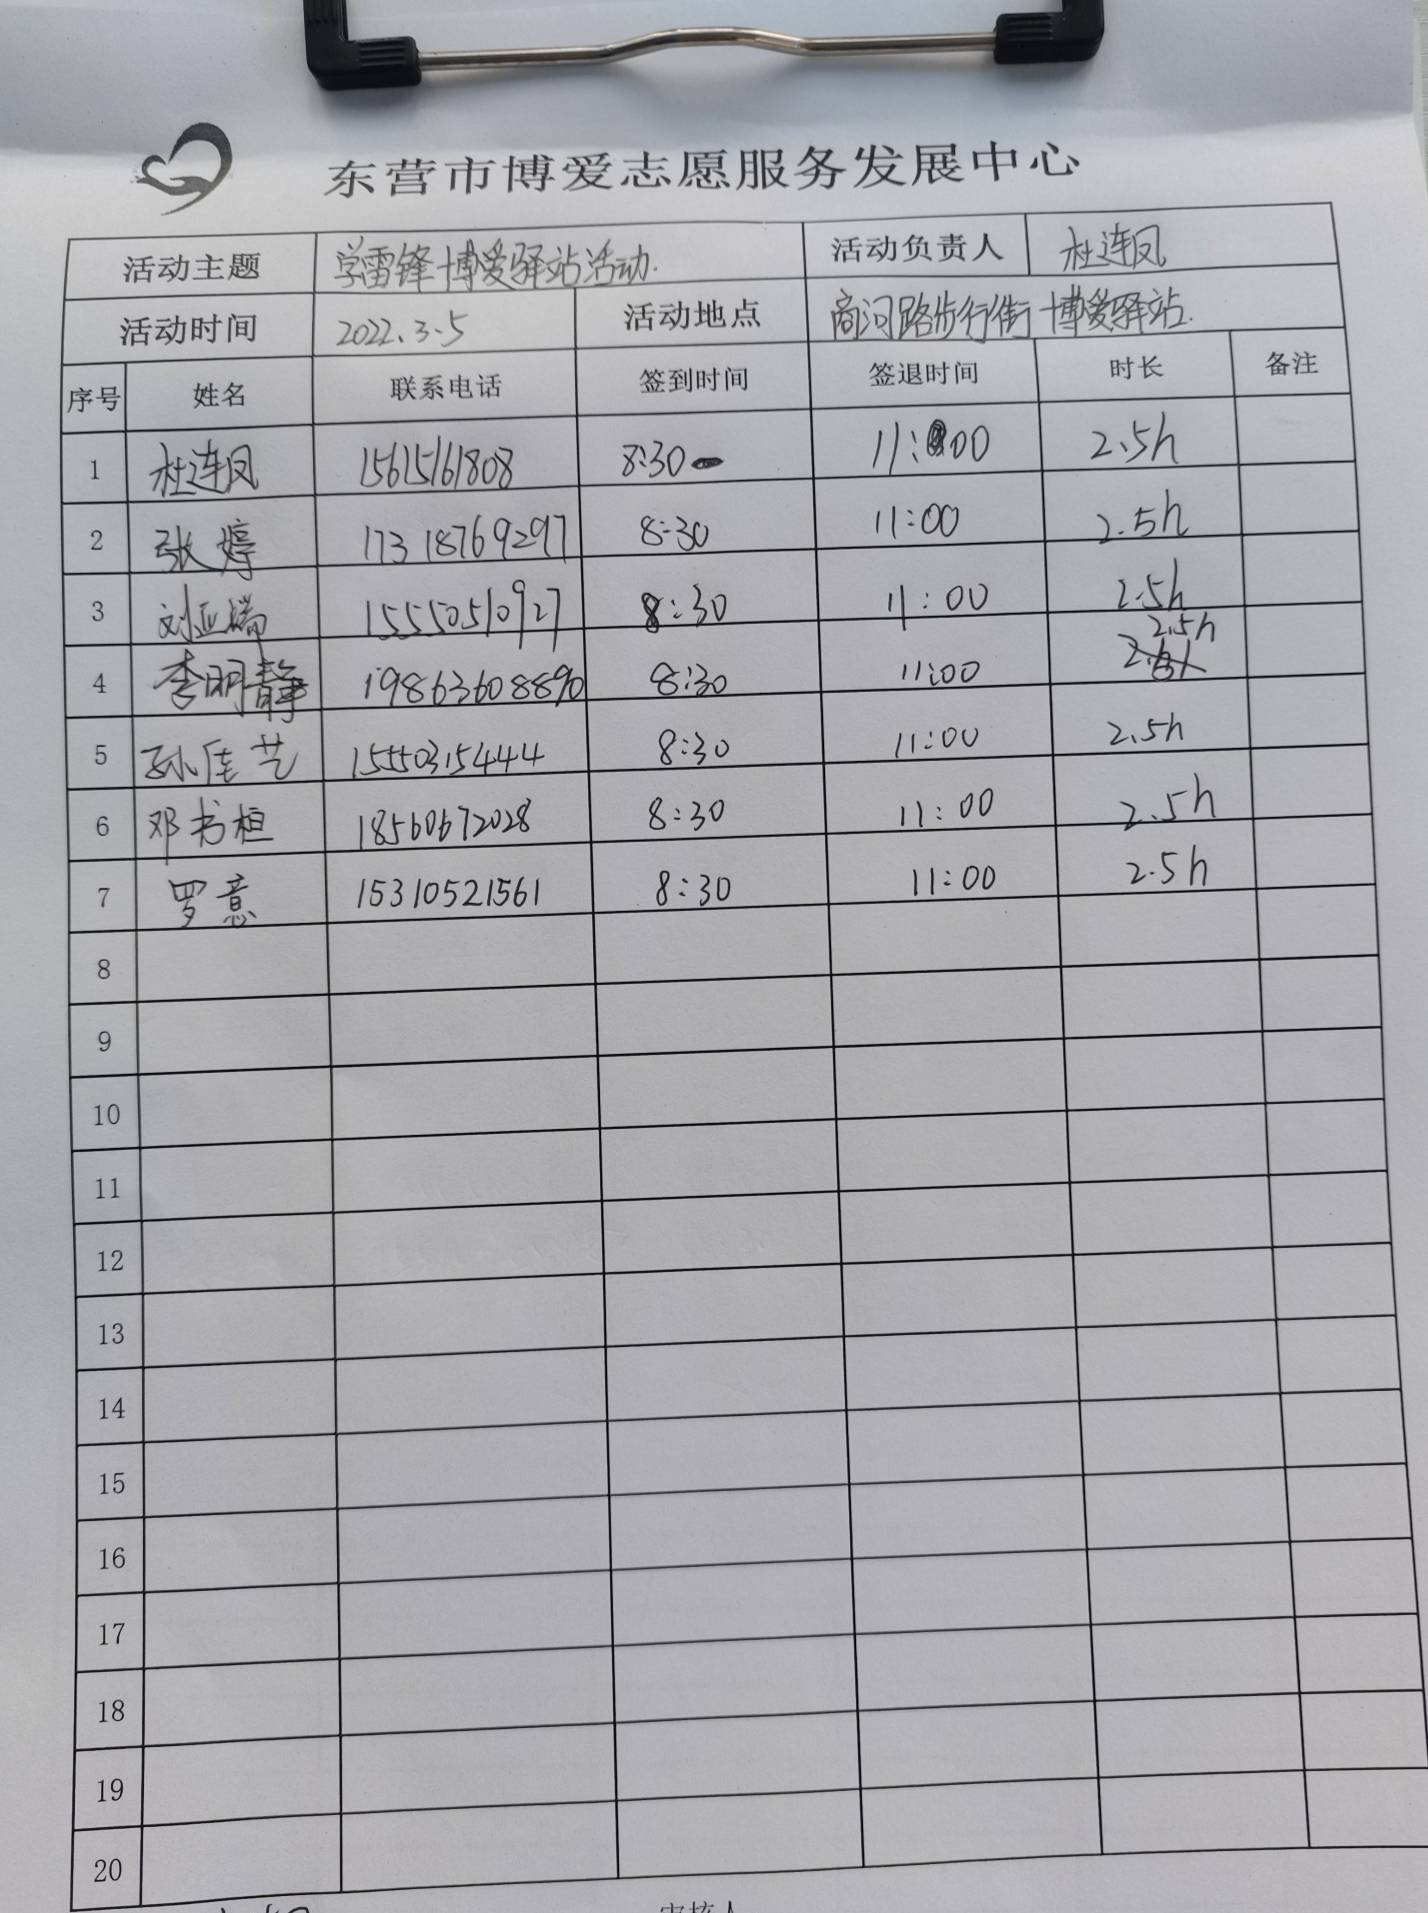 东营市博爱志愿服务发展中心
活动主题 学雷锋博爱驿站活动. 活动负责人 杜连凤
活动时间 2022.3.5 活动地点 商河路步行街博爱驿站.
序号 姓名 联系电话 签到时间 签退时间 时长 备注
1 杜连凤 15615161808 8:30 11:00 2.5h
2 张婷 17318769297 8:30 11:00 2.5h
3 刘亚瑞 15550510927 8:30 11:00 2.5h
4 李明静 19863608890 8:30 11:00 2.5h
5 孙佳艺 15550315444 8:30 11:00 2.5h
6 邓书桓 18560672028 8:30 11:00 2.5h
7 罗意 15310521561 8:30 11:00 2.5h
8
9
10
11
12
13
14
15
16
17
18
19
20
审核人